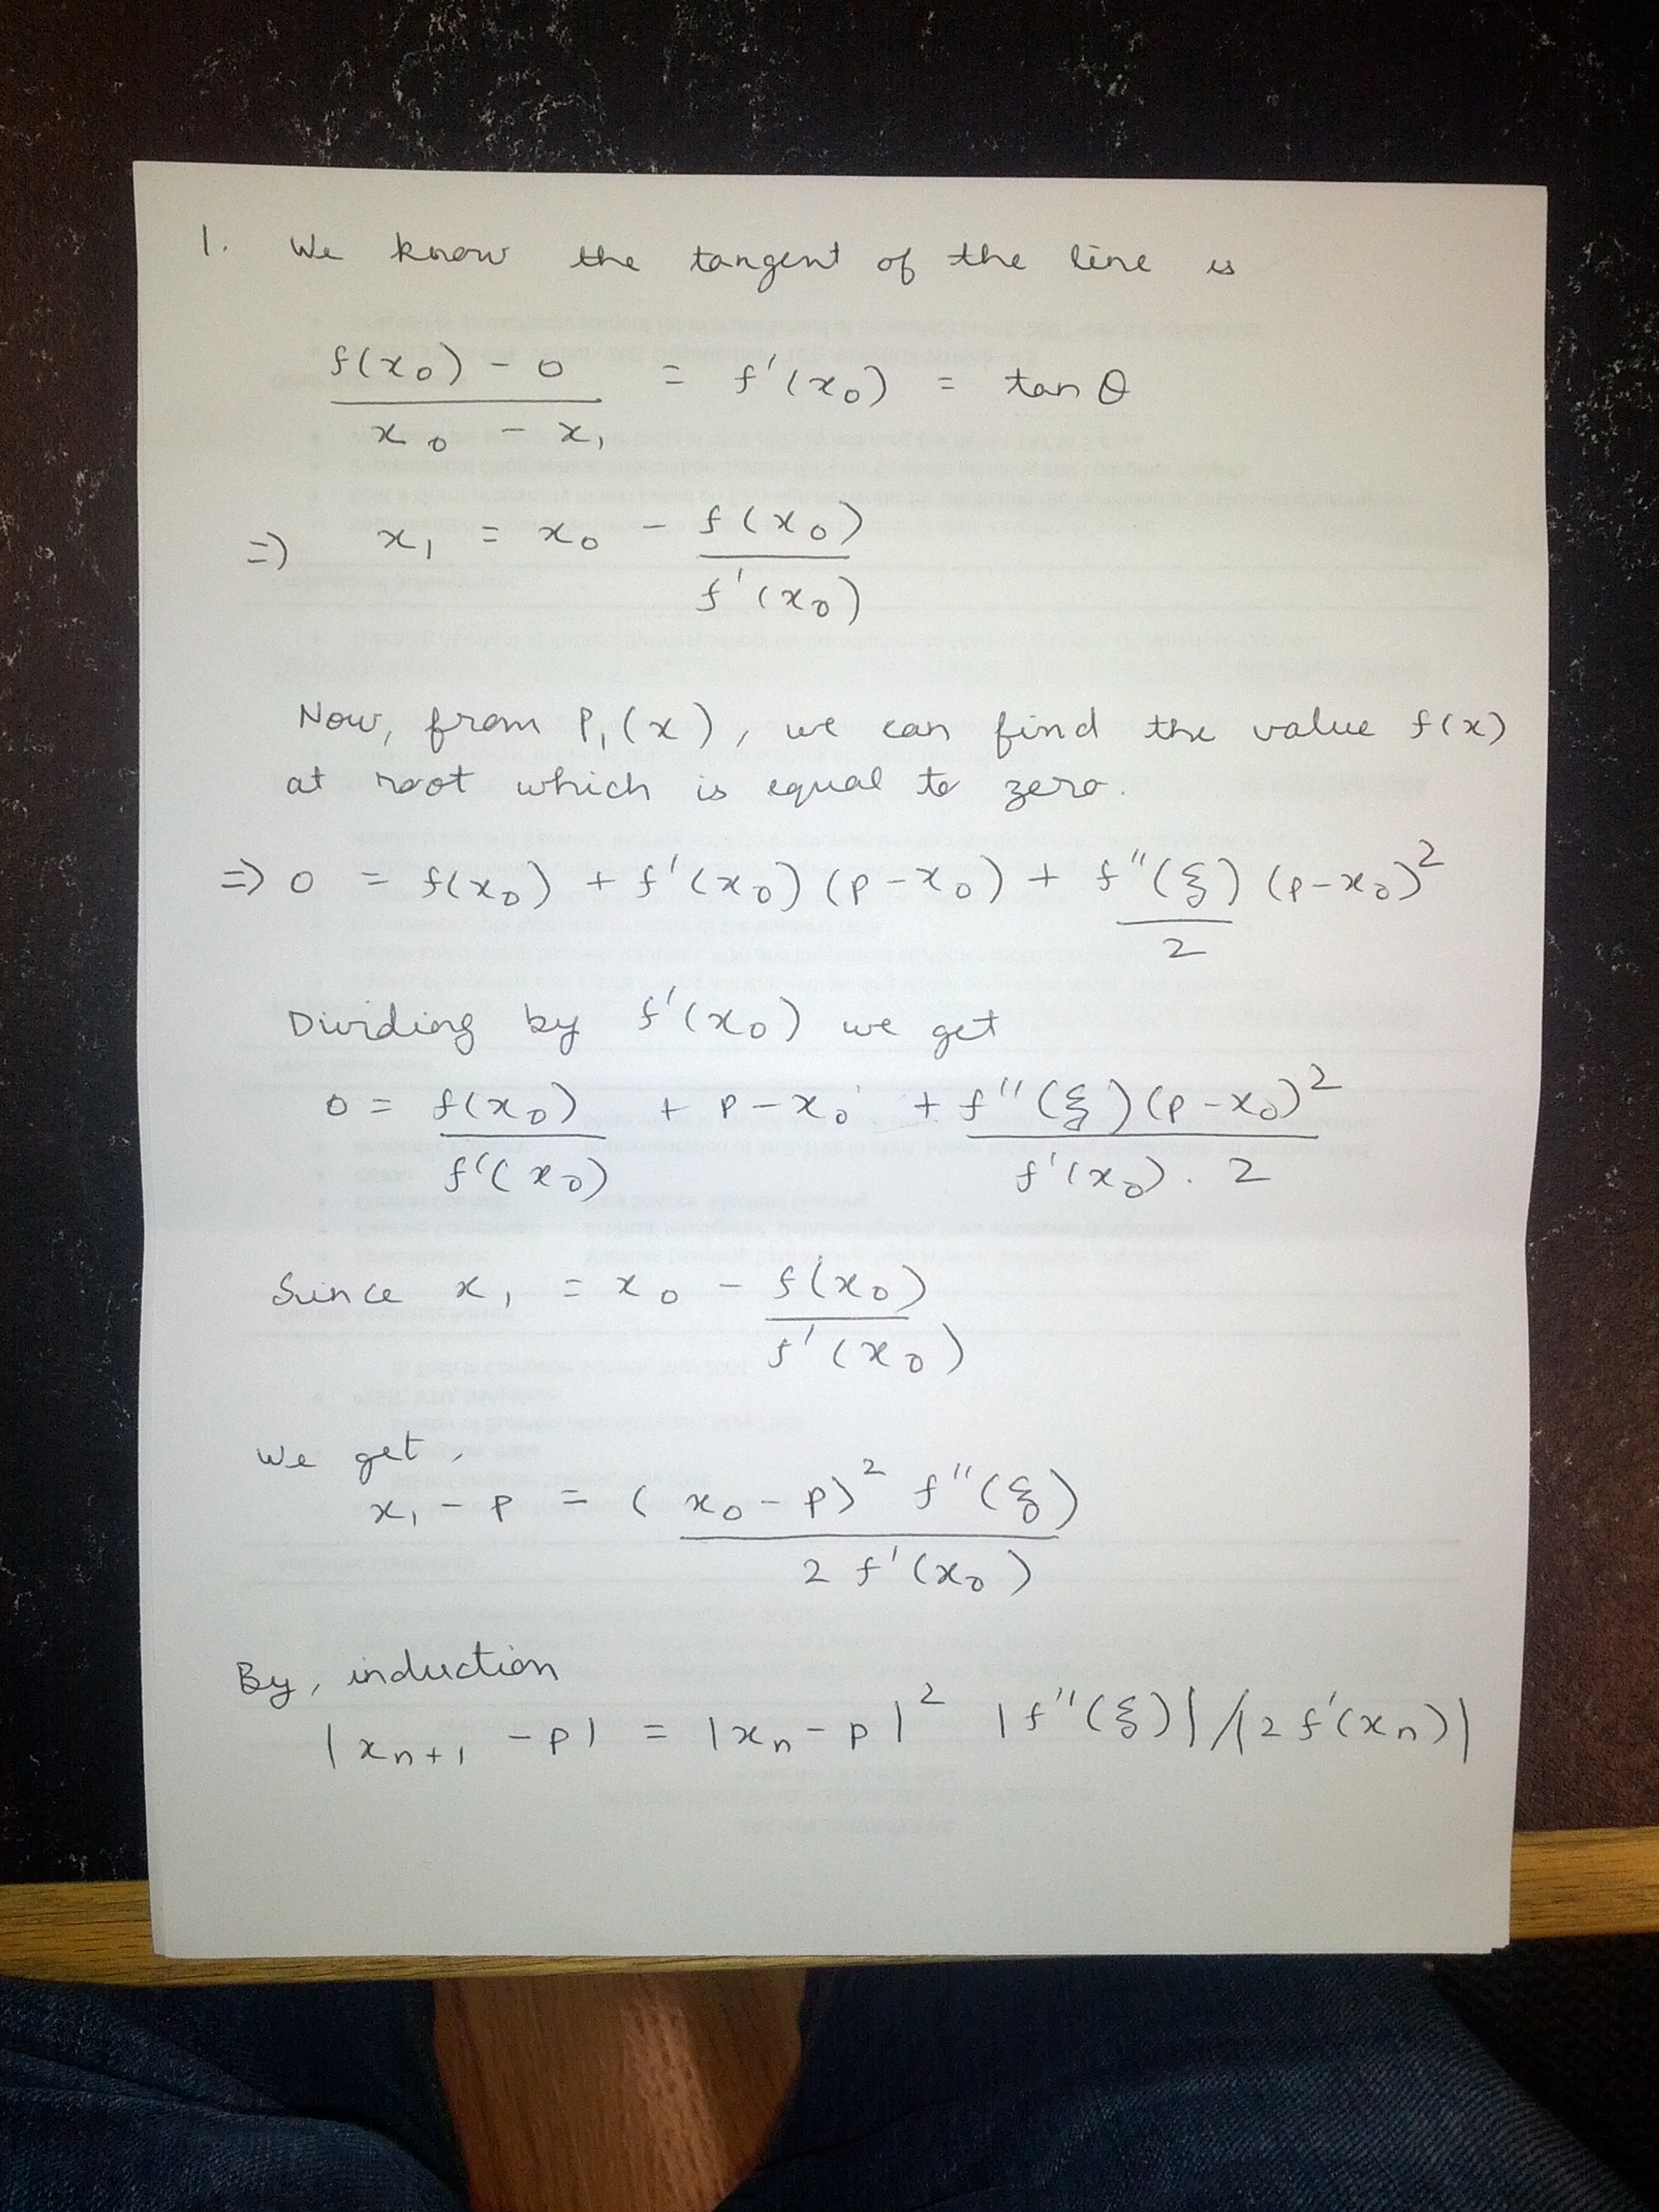 1. We know the tangent of the line is
f(x₀) - 0 / x₀ - x₁ = f'(x₀) = tan θ
=) x₁ = x₀ - f(x₀) / f'(x₀)
Now, from P₁(x), we can find the value f(x)
at root which is equal to zero.
=> 0 = f(x₀) + f'(x₀)(p-x₀) + f''(ξ)/2 (p-x₀)²
Dividing by f'(x₀) we get
0 = f(x₀) / f'(x₀) + p-x₀ + f''(ξ)(p-x₀)² / f'(x₀).2
Since x₁ = x₀ - f(x₀) / f'(x₀)
We get,
x₁ - p = (x₀ - p)² f''(ξ) / 2 f'(x₀)
By, induction
|xₙ₊₁ - p| = |xₙ - p|² |f''(ξ)| / |2 f'(xₙ)|